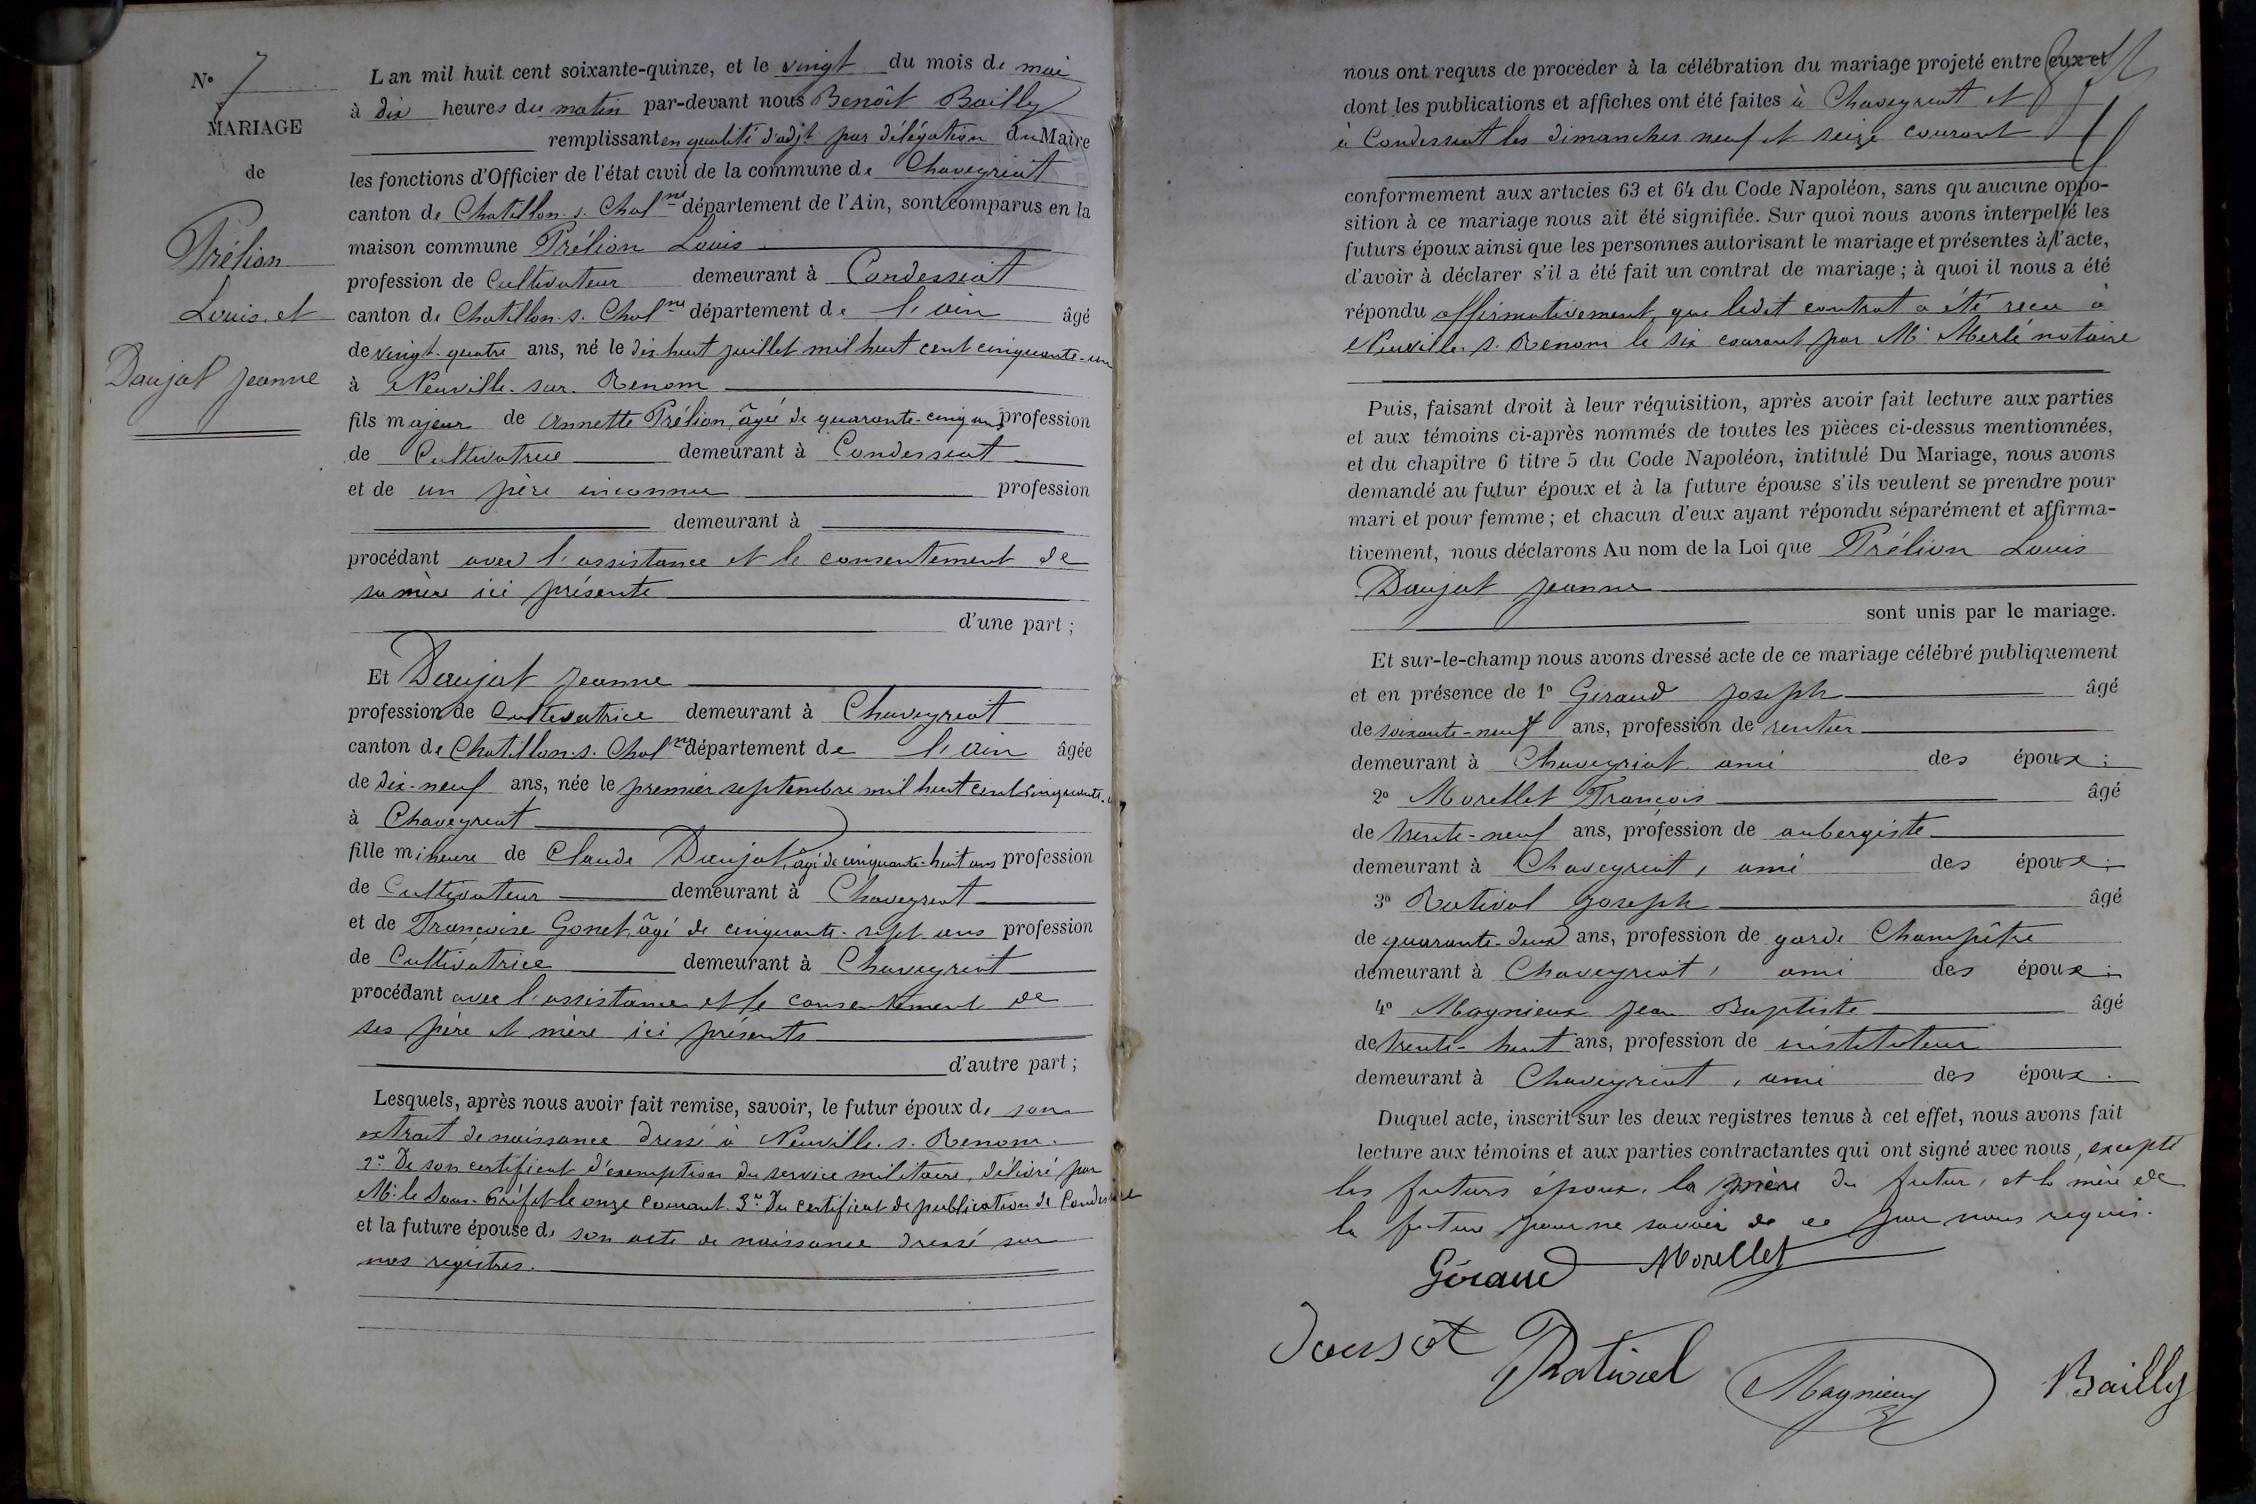 N° 7
MARIAGE
de
Prélion
Louis, et
Daujat Jeanne
L an mil huit cent soixante-quinze, et le vingt du mois de mai
à dix heures du matin par-devant nous Benoît Bailly
remplissant en qualité d'adjt par délégation du Maire
les fonctions d'Officier de l'état civil de la commune de Chaveyriat
canton de Chatillon. s. Chalne département de l'Ain, sont comparus en la
maison commune Prélion Louis
profession de Cultivateur demeurant à Condessiat
canton de Chatillon. s. Chalne département de l'ain âgé
de vingt-quatre ans, né le dix huit juillet mil huit cent cinquante-un
à Neuville-sur-Renom
fils majeur de Annette Prélion, âgée de quarante-cinq ans profession
de Cultivatrice demeurant à Condessiat
et de un père inconnu profession
demeurant à
procédant avec l'assistance et le consentement de
sa mère ici présente
d'une part ;
Et Daujat Jeanne
profession de Cultivatrice demeurant à Chaveyriat
canton de Chatillon. s. Chalne département de l'ain âgée
de dix-neuf ans, née le premier septembre mil huit cent cinquante-
à Chaveyriat
fille mineure de Claude Daujat, âgé de cinquante-huit ans profession
de Cultivateur demeurant à Chaveyriat
et de Françoise Gonet, âgé de cinquante-sept ans profession
de Cultivatrice demeurant à Chaveyriat
procédant avec l'assistance et le consentement de
ses père et mère ici présents
d'autre part ;
Lesquels, après nous avoir fait remise, savoir, le futur époux de son
extrait de naissance dressé à Neuville. s. Renom.
2° De son certificat d'exemption du service militaire, délivré par
Mr le Sous-Préfet le onze courant. 3° Du certificat de publication de Condessiat
et la future épouse de son acte de naissance dressé sur
nos registres.
nous ont requis de procéder à la célébration du mariage projeté entre eux et
dont les publications et affiches ont été faites à Chaveyriat et
à Condessiat les dimanches neuf et seize courant
conformement aux articles 63 et 64 du Code Napoléon, sans qu aucune oppo-
sition à ce mariage nous ait été signifiée. Sur quoi nous avons interpellé les
futurs époux ainsi que les personnes autorisant le mariage et présentes à l'acte,
d'avoir à déclarer s'il a été fait un contrat de mariage ; à quoi il nous a été
répondu affirmativement, que ledit contrat a été recu à
Neuville. s. Renom le six courant par Me Merlé notaire
Puis, faisant droit à leur réquisition, après avoir fait lecture aux parties
et aux témoins ci-après nommés de toutes les pièces ci-dessus mentionnées,
et du chapitre 6 titre 5 du Code Napoléon, intitulé Du Mariage, nous avons
demandé au futur époux et à la future épouse s'ils veulent se prendre pour
mari et pour femme ; et chacun d'eux ayant répondu séparément et affirma-
tivement, nous déclarons Au nom de la Loi que Prélion Louis
Daujat Jeanne
sont unis par le mariage.
Et sur-le-champ nous avons dressé acte de ce mariage célébré publiquement
et en présence de 1° Géraud Joseph âgé
de soixante-neuf ans, profession de rentier
demeurant à Chaveyriat ami des époux ;
2° Morellet François âgé
de trente-neuf ans, profession de aubergiste
demeurant à Chaveyriat, ami des époux ;
3° Rativel Joseph âgé
de quarante-deux ans, profession de garde Champêtre
demeurant à Chaveyriat, ami des époux ;
4° Magnieux Jean Baptiste âgé
de trente-huit ans, profession de instituteur
demeurant à Chaveyriat, ami des époux.
Duquel acte, inscrit sur les deux registres tenus à cet effet, nous avons fait
lecture aux témoins et aux parties contractantes qui ont signé avec nous, excepté
les futurs époux, la mère du futur, et la mère de
la future pour ne savoir de ce par nous requis.
Géraud Morellet
Rativel
Magnieux
Bailly